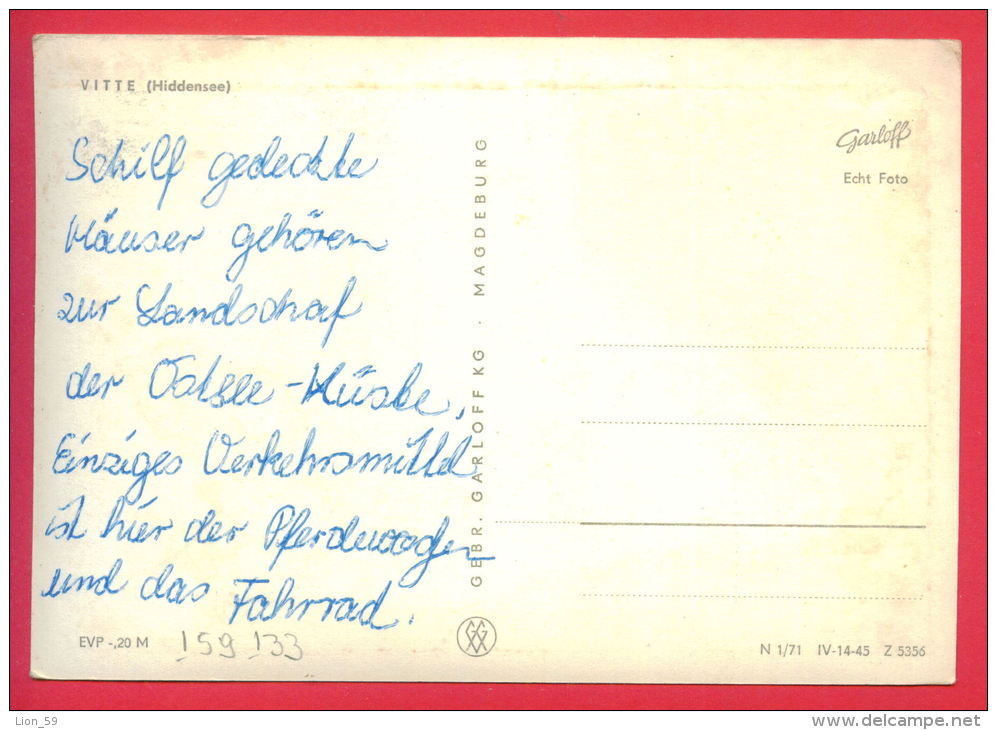 VITTE (Hiddensee)
Schilf gedeckte
Häuser gehören
zur Landschaf
der Ostsee-Küste,
Einziges Verkehrsmittel
ist hier der Pferdewagen
und das Fahrrad.
EVP -,20 M
159 133
GEBR. GARLOFF KG · MAGDEBURG
Garloff
Echt Foto
N 1/71 IV-14-45 Z 5356
Lion_59
delcampe.net